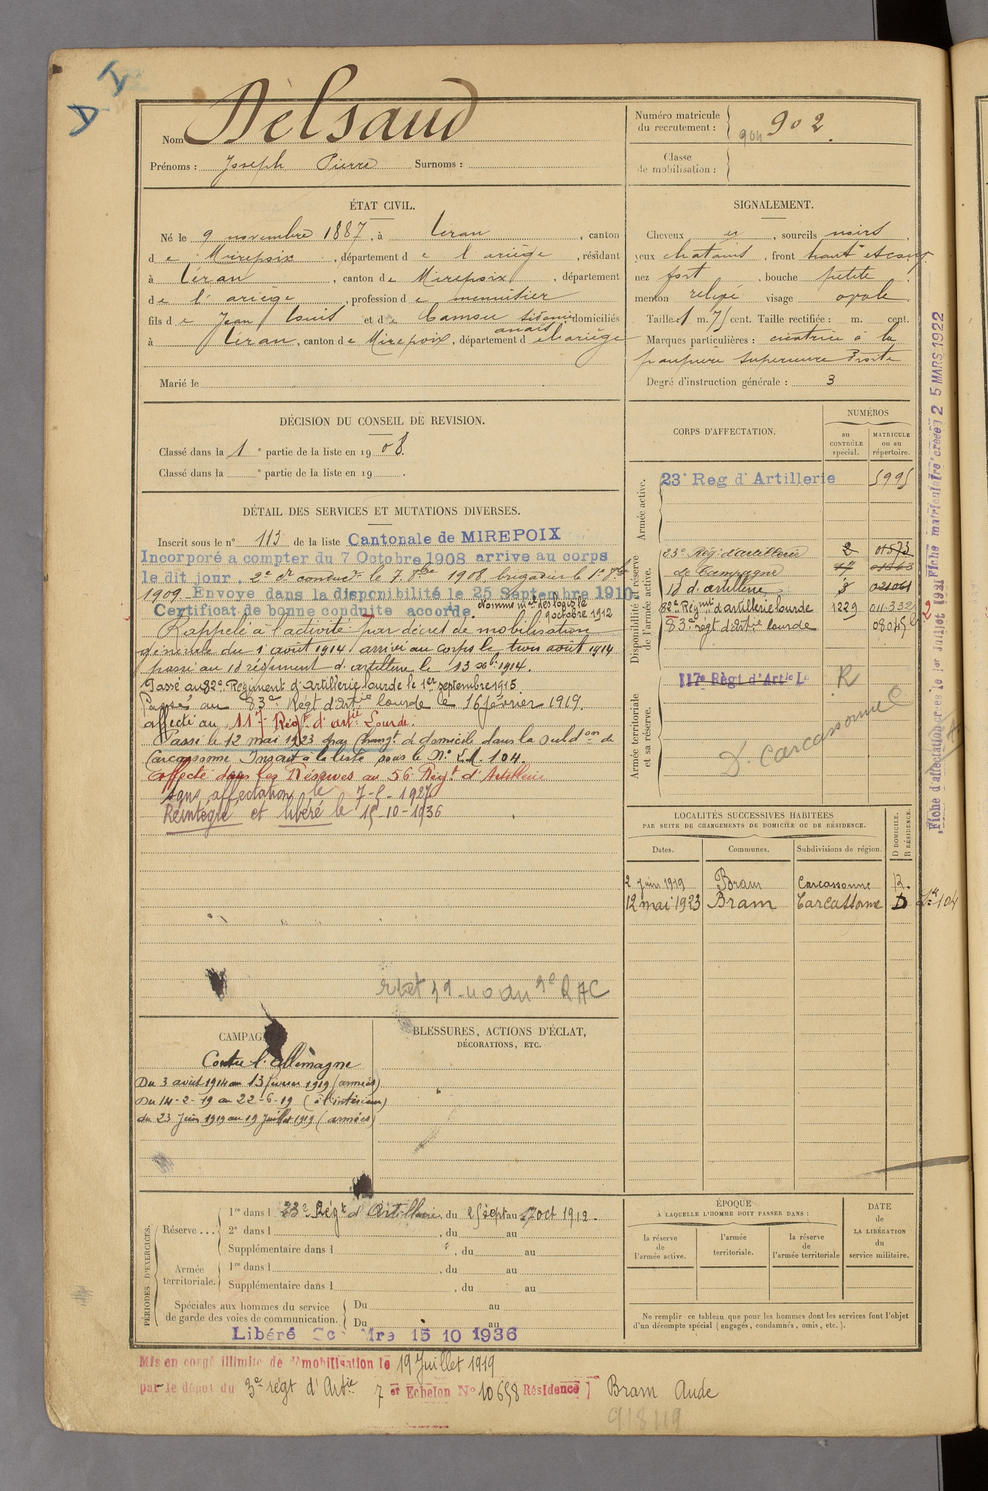 Nom Delsaud
Prénoms : Joseph Pierre Surnoms :
Numéro matricule du recrutement : 904 902.
Classe de mobilisation :
ÉTAT CIVIL.
Né le 9 novembre 1887, à Léran, canton
de Mirepoix, département de l'ariège, résidant
à Léran, canton de Mirepoix, département
de l'ariège, profession de menuisier
fils de Jean Louis et de Camou Sidonie anaïs domiciliés
à Léran, canton de Mirepoix, département de l'ariège
Marié le
SIGNALEMENT.
Cheveux et, sourcils noirs,
yeux chatains, front haut et
nez fort, bouche petite
menton relevé visage ovale
Taille : 1 m. 75 cent. Taille rectifiée : m. cent.
Marques particulières : cicatrice à la
paupière supérieure droite
Degré d'instruction générale : 3
DÉCISION DU CONSEIL DE REVISION.
Classé dans la 1e partie de la liste en 1908.
Classé dans la e partie de la liste en 19 .
DÉTAIL DES SERVICES ET MUTATIONS DIVERSES.
Inscrit sous le n° 113 de la liste Cantonale de MIREPOIX
Incorporé a compter du 7 Octobre 1908 arrive au corps
le dit jour. 2e cr conducr le 7 8bre 1908 brigadier le 1er 8bre
1909. Envoye dans la disponibilité le 25 Septembre 1910
Certificat de bonne conduite accordé.
Nommé mal des logis le
9 octobre 1912
Rappelé à l'activité par décret de mobilisation
générale du 1 août 1914 arrivé au corps le trois août 1914
passé au 1d régiment d'artillerie le 13 1914.
Passé au 82e Régiment d'Artillerie lourde le 1er septembre 1915.
Passé au 83e Régt d'Artie lourde le 16 février 1919.
affecté au 117e Régt d'artie Lourde.
Passé le 12 mai 1923 par changt de domicile dans la subdon de
Carcassonne Inscrit à la liste sous le No L.M. 104.
Affecté dans les Réserves au 56 Régt d'Artillerie
sans affectation le 1927
Réintégré et libéré le 15-10-1936
CORPS D'AFFECTATION.
NUMÉROS
au CONTRÔLE spécial.
MATRICULE ou au répertoire.
Armée active.
23e Reg d'Artillerie 5995
Disponibilité et réserve de l'armée active.
23e Rég. d'artillerie 2 01573
de Campagne
1d d'artillerie 3
82e Régimt d'artillerie lourde 1229 011332
83e régt d'artie lourde 08045
Armée territoriale et sa réserve.
117e Règt d'Artie L R
D. Carcassonne
LOCALITÉS SUCCESSIVES HABITÉES
PAR SUITE DE CHANGEMENTS DE DOMICILE OU DE RÉSIDENCE.
Dates. Communes. Subdivisions de région. D DOMICILE. R RÉSIDENCE.
2 juin 1919 Bram Carcassonne R.
12 mai 1923 Bram Carcassonne D
104
Fiche d'affectation créée le 1er Juillet 1931
Fiche matriculaire créée 25 MARS 1922
CAMPAGNES
Contre l'Allemagne
Du 3 août 1914 au 13 février 1919 (armées)
Du 14-2-19 au 22-6-19 (à l'intérieur)
du 23 Juin 1919 au 19 juillet 1919 (armées)
BLESSURES, ACTIONS D'ÉCLAT,
DÉCORATIONS, ETC.
PÉRIODES D'EXERCICES.
Réserve ...
1re dans l 23e Régt d'Artillerie. du 25 sept au 7 oct 1912.
2e dans l , du au
Supplémentaire dans l , du au
Armée territoriale.
1re dans l , du au
Supplémentaire dans l , du au
Spéciales aux hommes du service
de garde des voies de communication.
Du au
Du au
Libéré 15 10 1936
ÉPOQUE
À LAQUELLE L'HOMME DOIT PASSER DANS :
la réserve de l'armée active.
l'armée territoriale.
la réserve de l'armée territoriale
DATE de LA LIBÉRATION du service militaire.
Ne remplir ce tableau que pour les hommes dont les services font l'objet
d'un décompte spécial (engagés, condamnés, omis, etc.).
Mis en congé illimité de démobilisation le 19 Juillet 1919
par le dépôt du 3e régt d'Artie 7 er Echelon No 10658 Résidence Bram Aude